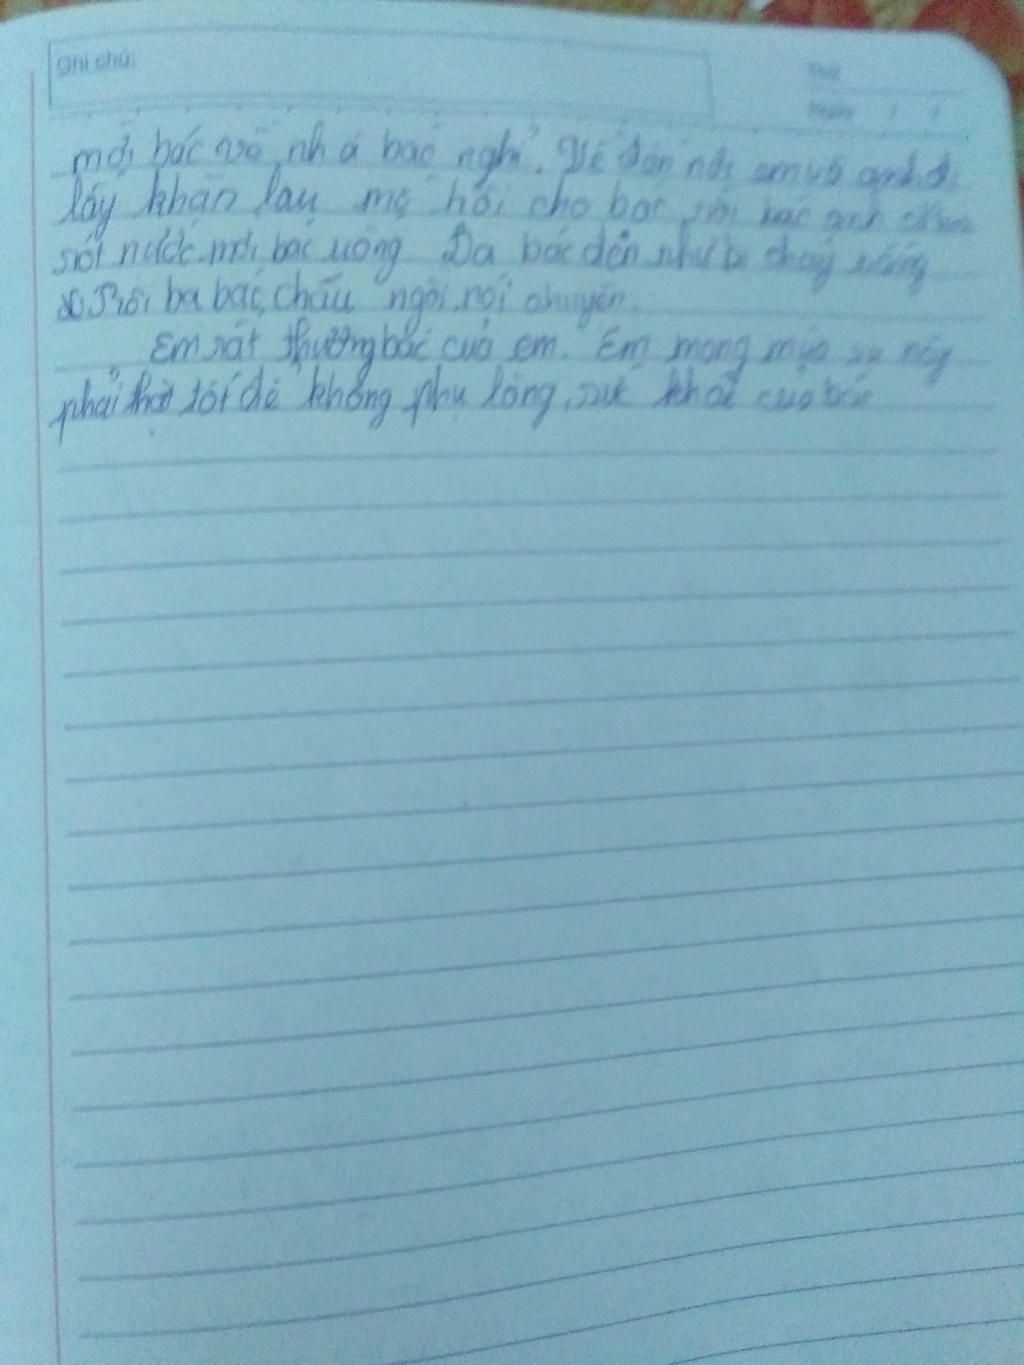 Ghi chú:
Thứ
Ngày / /
mời bác về nhà bác nghỉ. Về đến nơi em và anh đi
lấy khăn lau mồ hôi cho bác rồi bác anh
rót nước mời bác uống. Da bác đen như bị cháy nắng
Rồi ba bác, cháu ngồi nói chuyện.
Em rất thương bác của em. Em mong mùa vụ này
phải thật tốt để không phụ lòng, sức khoẻ của bác